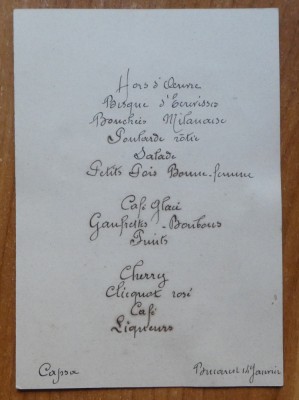 Hors d'Œuvre
Bisque d'Ecrevisses
Bouchées Milanaise
Poularde rôtie
Salade
Petits Pois Bonne-femme
Café Glacé
Gaufrettes - Bonbons
Fruits
Cherry
Clicquot rosé
Café
Liqueurs
Capsa
Janvier